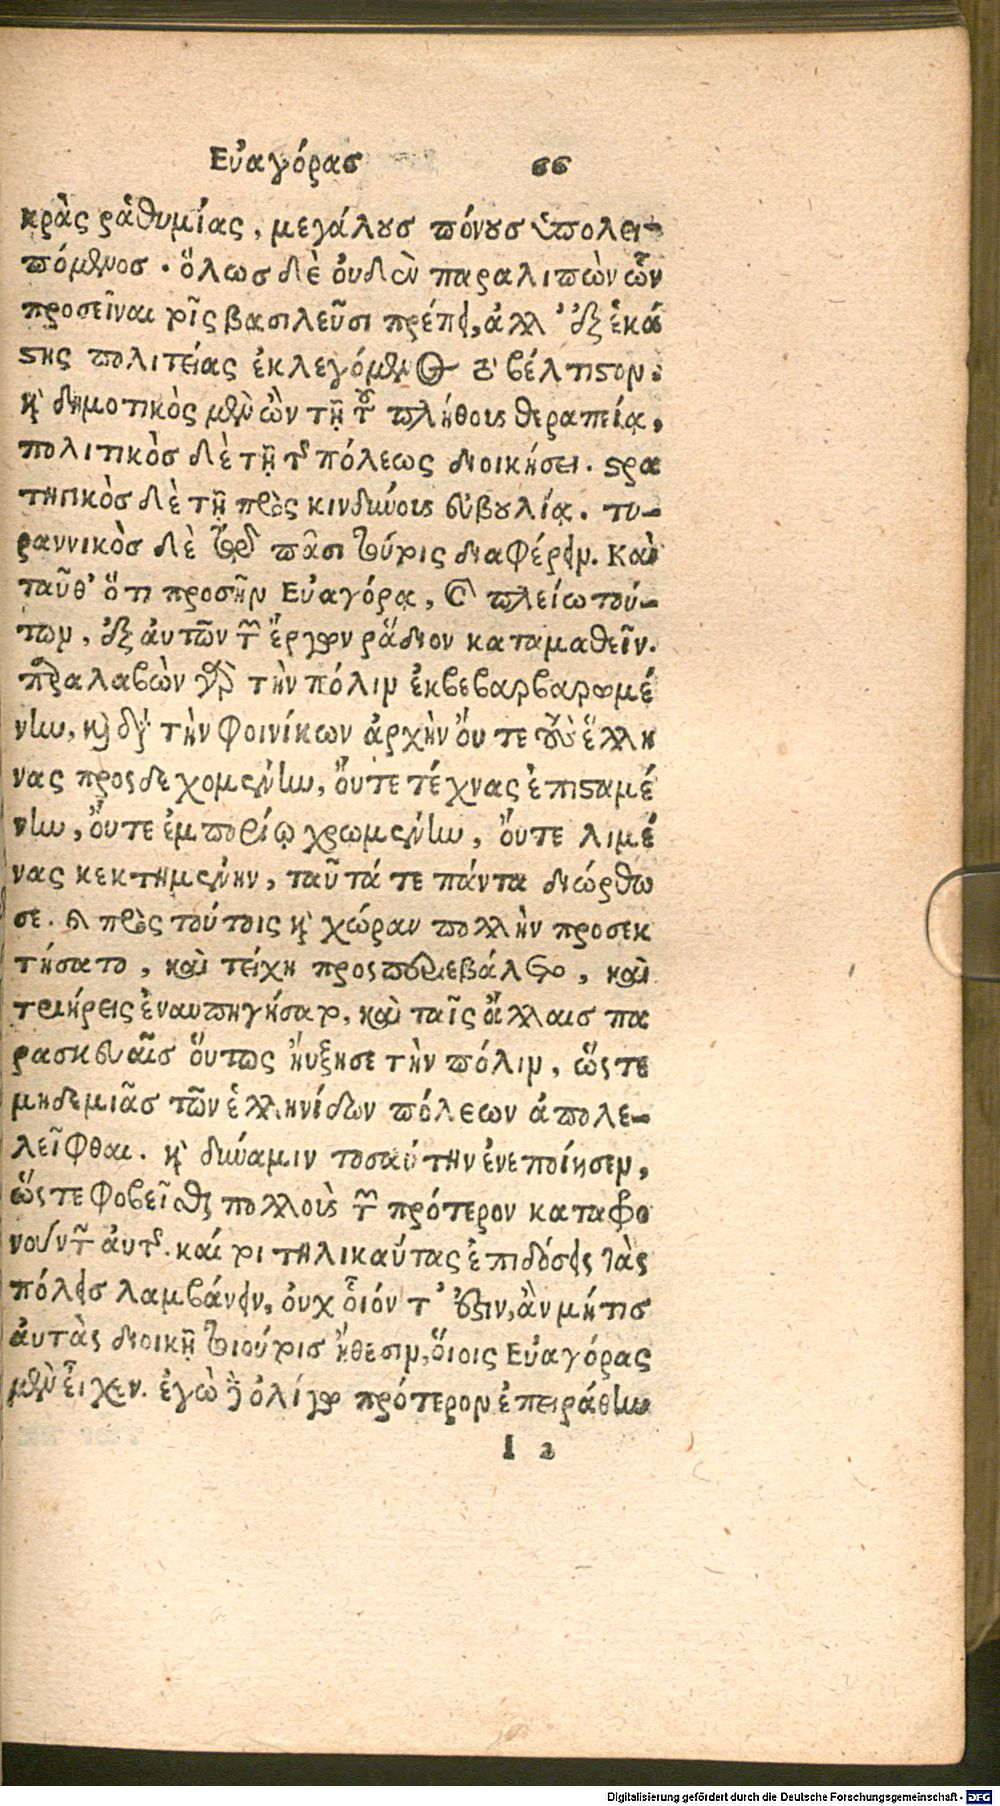 Εὐαγόρας 66
κρὰς ῥαθυμίας, μεγάλους πόνους ὑπολει-
πόμενος. ὅλως δὲ ὀυδὲν παραλιπὼν ὧν
προσεῖναι τοῖς βασιλεῦσι πρέπει, ἀλλ' ἐξ ἑκά
στης πολιτείας ἐκλεγόμενος τὸ βέλτιστον.
καὶ δημοτικὸς μὲν ὢν τῇ τοῦ πλήθους θεραπείᾳ,
πολιτικὸς δὲ τῇ τῆς πόλεως διοικήσει. στρα
τηγικὸς δὲ τῇ πρὸς κινδύνους εὐβουλίᾳ. τυ-
ραννικὸς δὲ τῷ πᾶσι τούτοις διαφέρειν. Καὶ
ταῦθ' ὅτι προσῆν Εὐαγόρᾳ, καὶ πλείω τού-
των, ἐξ ἀυτῶν τῶν ἔργων ῥᾴδιον καταμαθεῖν.
παραλαβὼν γὰρ τὴν πόλιν ἐκβεβαρβαρωμέ
νην, καὶ διὰ τὴν Φοινίκων ἀρχὴν ὄυτε τοὺς ἕλλη
νας προσδεχομένην, ὄυτε τέχνας ἐπισταμέ
νην, ὄυτε ἐμπορίῳ χρωμένην, ὄυτε λιμέ
νας κεκτημένην, ταῦτά τε πάντα διώρθω
σε. καὶ πρὸς τούτοις καὶ χώραν πολλὴν προσεκ
τήσατο, καὶ τείχη προσπεριεβάλετο, καὶ
τριήρεις ἐναυπηγήσατο, καὶ ταῖς ἄλλαις πα
ρασκευαῖς ὅυτως ἠύξησε τὴν πόλιν, ὥστε
μηδεμιᾶς τῶν ἑλληνίδων πόλεων ἀπολε-
λεῖφθαι. καὶ δύναμιν τοσαύτην ἐνεποίησεν,
ὥστε φοβεῖσθαι πολλοὺς τῶν πρότερον καταφρο
νούντων ἀυτῆς. καί τοι τηλικαύτας ἐπιδόσεις τὰς
πόλεις λαμβάνειν, ὀυχ οἷόν τ' ἐστιν, ἂν μή τις
ἀυτὰς διοικῇ τοιούτοις ἤθεσιν, ὅιοις Εὐαγόρας
μὲν εἶχεν. ἐγὼ δὲ ὀλίγῳ πρότερον ἐπειράθην
I 2
Digitalisierung gefördert durch die Deutsche Forschungsgemeinschaft - DFG